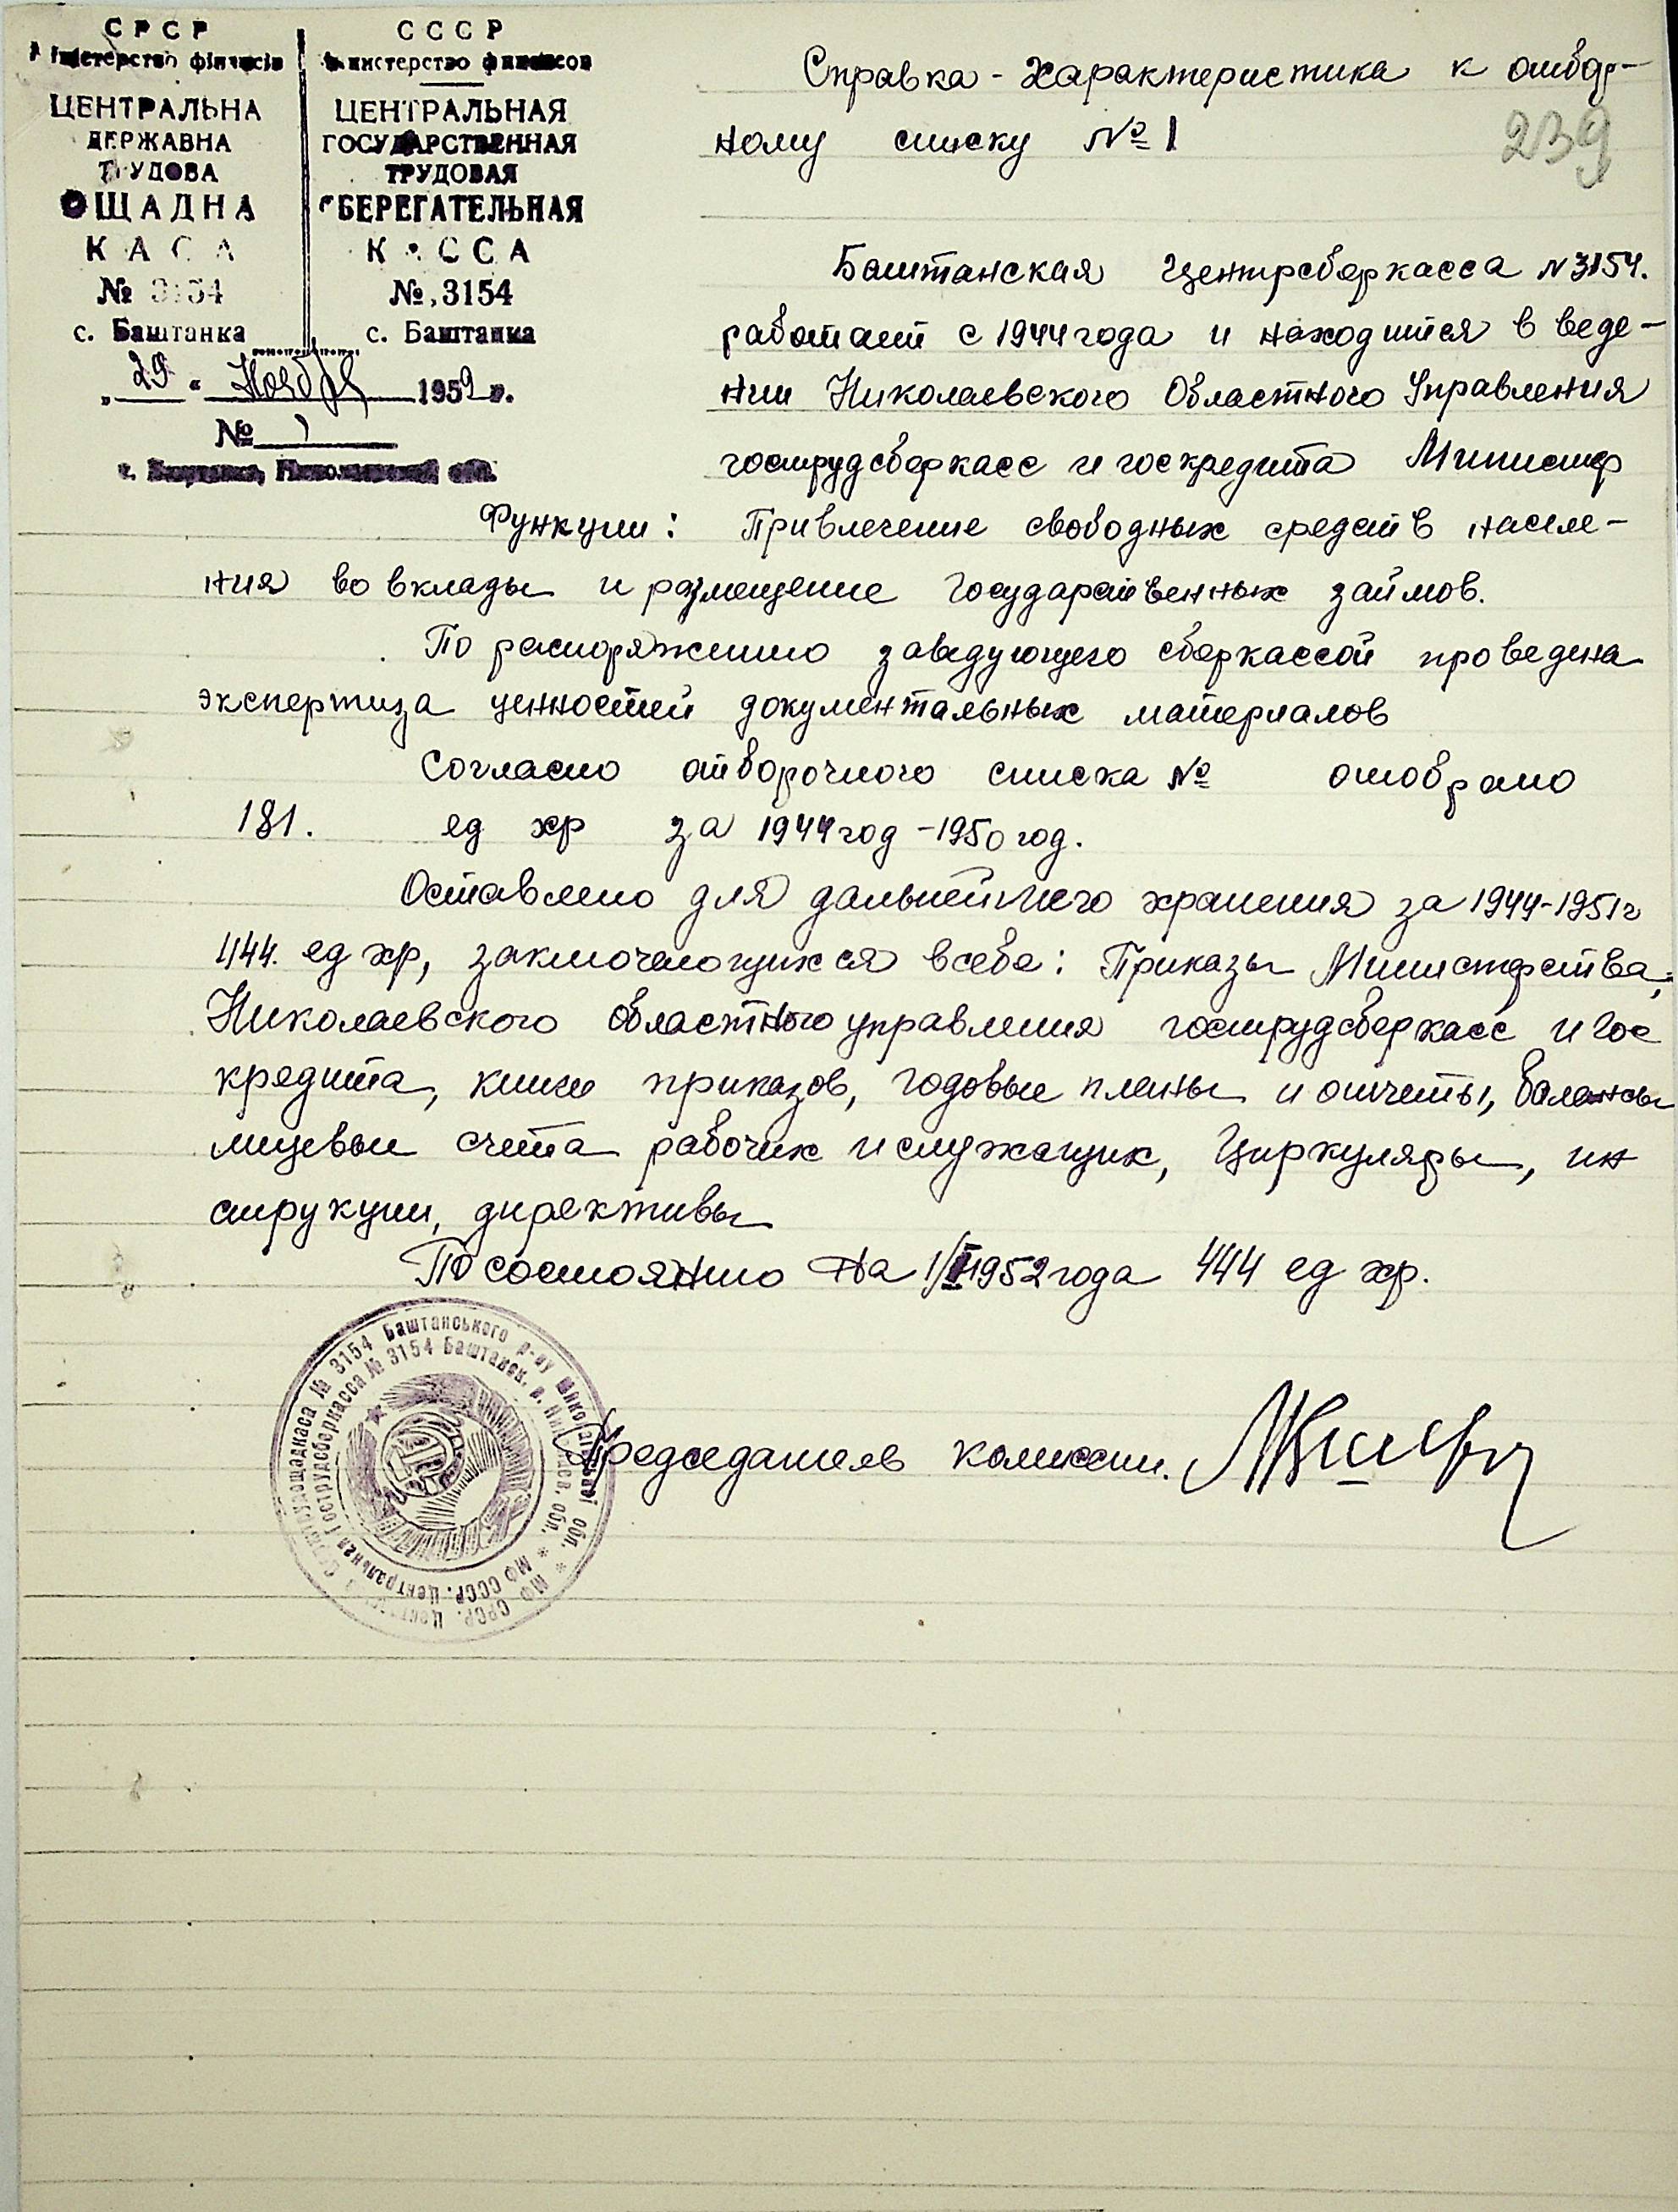 СРСР
Міністерство фінансів
ЦЕНТРАЛЬНА
ДЕРЖАВНА
ТРУДОВА
ОЩАДНА
КАСА
№ 3154
с. Баштанка
СССР
Министерство финансов
ЦЕНТРАЛЬНАЯ
ГОСУДАРСТВЕННАЯ
ТРУДОВАЯ
СБЕРЕГАТЕЛЬНАЯ
КАССА
№ 3154
с. Баштанка
„29“ Ноября 1952 г.
№
Справка - Характеристика к отбор-
ному списку № 1
239
Баштанская Центрсберкасса N 3154.
работает с 1944 года и находится в веде-
нии Николаевского Областного Управления
гострудсберкасс и госкредита Министер
Функции: Привлечение свободных средств населе-
ния во вклады и размещение Государственных займов.
По распоряжению заведующего сберкассой проведена
экспертиза ценностей документальных материалов
Согласно отборочного списка № отобрано
181. ед хр за 1944 год - 1950 год.
Оставлено для дальнейшего хранения за 1944-1951г
444. ед хр, заключающихся в себе: Приказы Министерства,
Николаевского Областного управления гострудсберкасс и Гос
кредита, книги приказов, годовые планы и отчеты, балансы
лицевые счета рабочих и служащих, Циркуляры, ин
струкции, директивы
По состоянию на 1/I 1952 года 444 ед хр.
Председатель комиссии.
№ 3154 Баштанського р-ну Миколаївської обл. * МФ СРСР.
Центральная Гострудсберкасса № 3154 Баштанск. р. Николаев. обл. * МФ СССР.